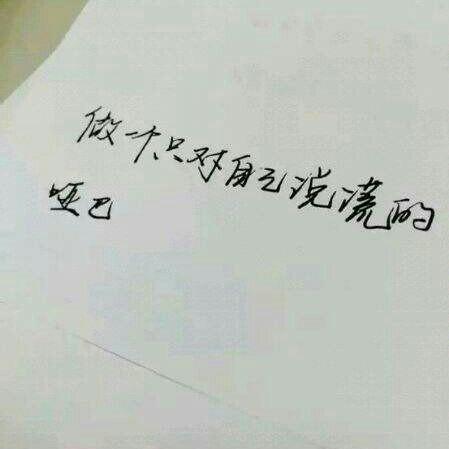 做一个只对自己说谎的
哑巴